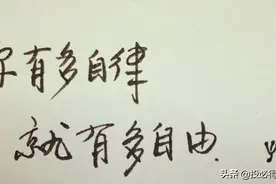 有多自律
就有多自由.
头条 @投必得